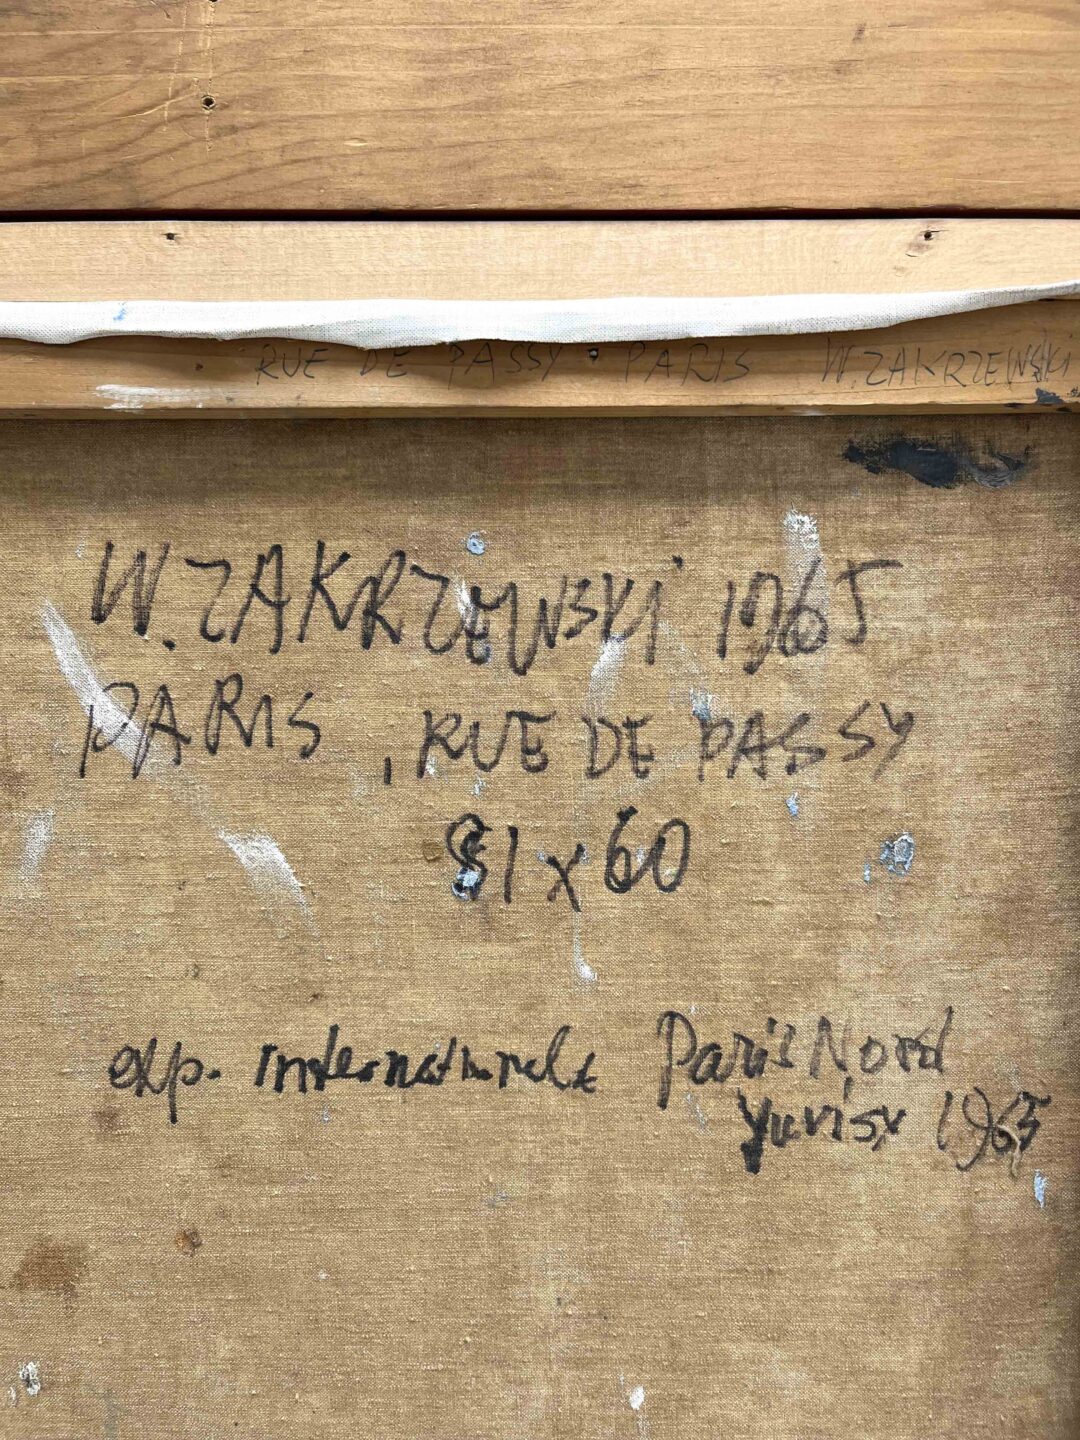 RUE DE PASSY . PARIS W. ZAKRZEWSKI
W. ZAKRZEWSKI 1965
PARIS, RUE DE PASSY
81 x 60
exp. internationale Paris Nord
Juvisy 1965